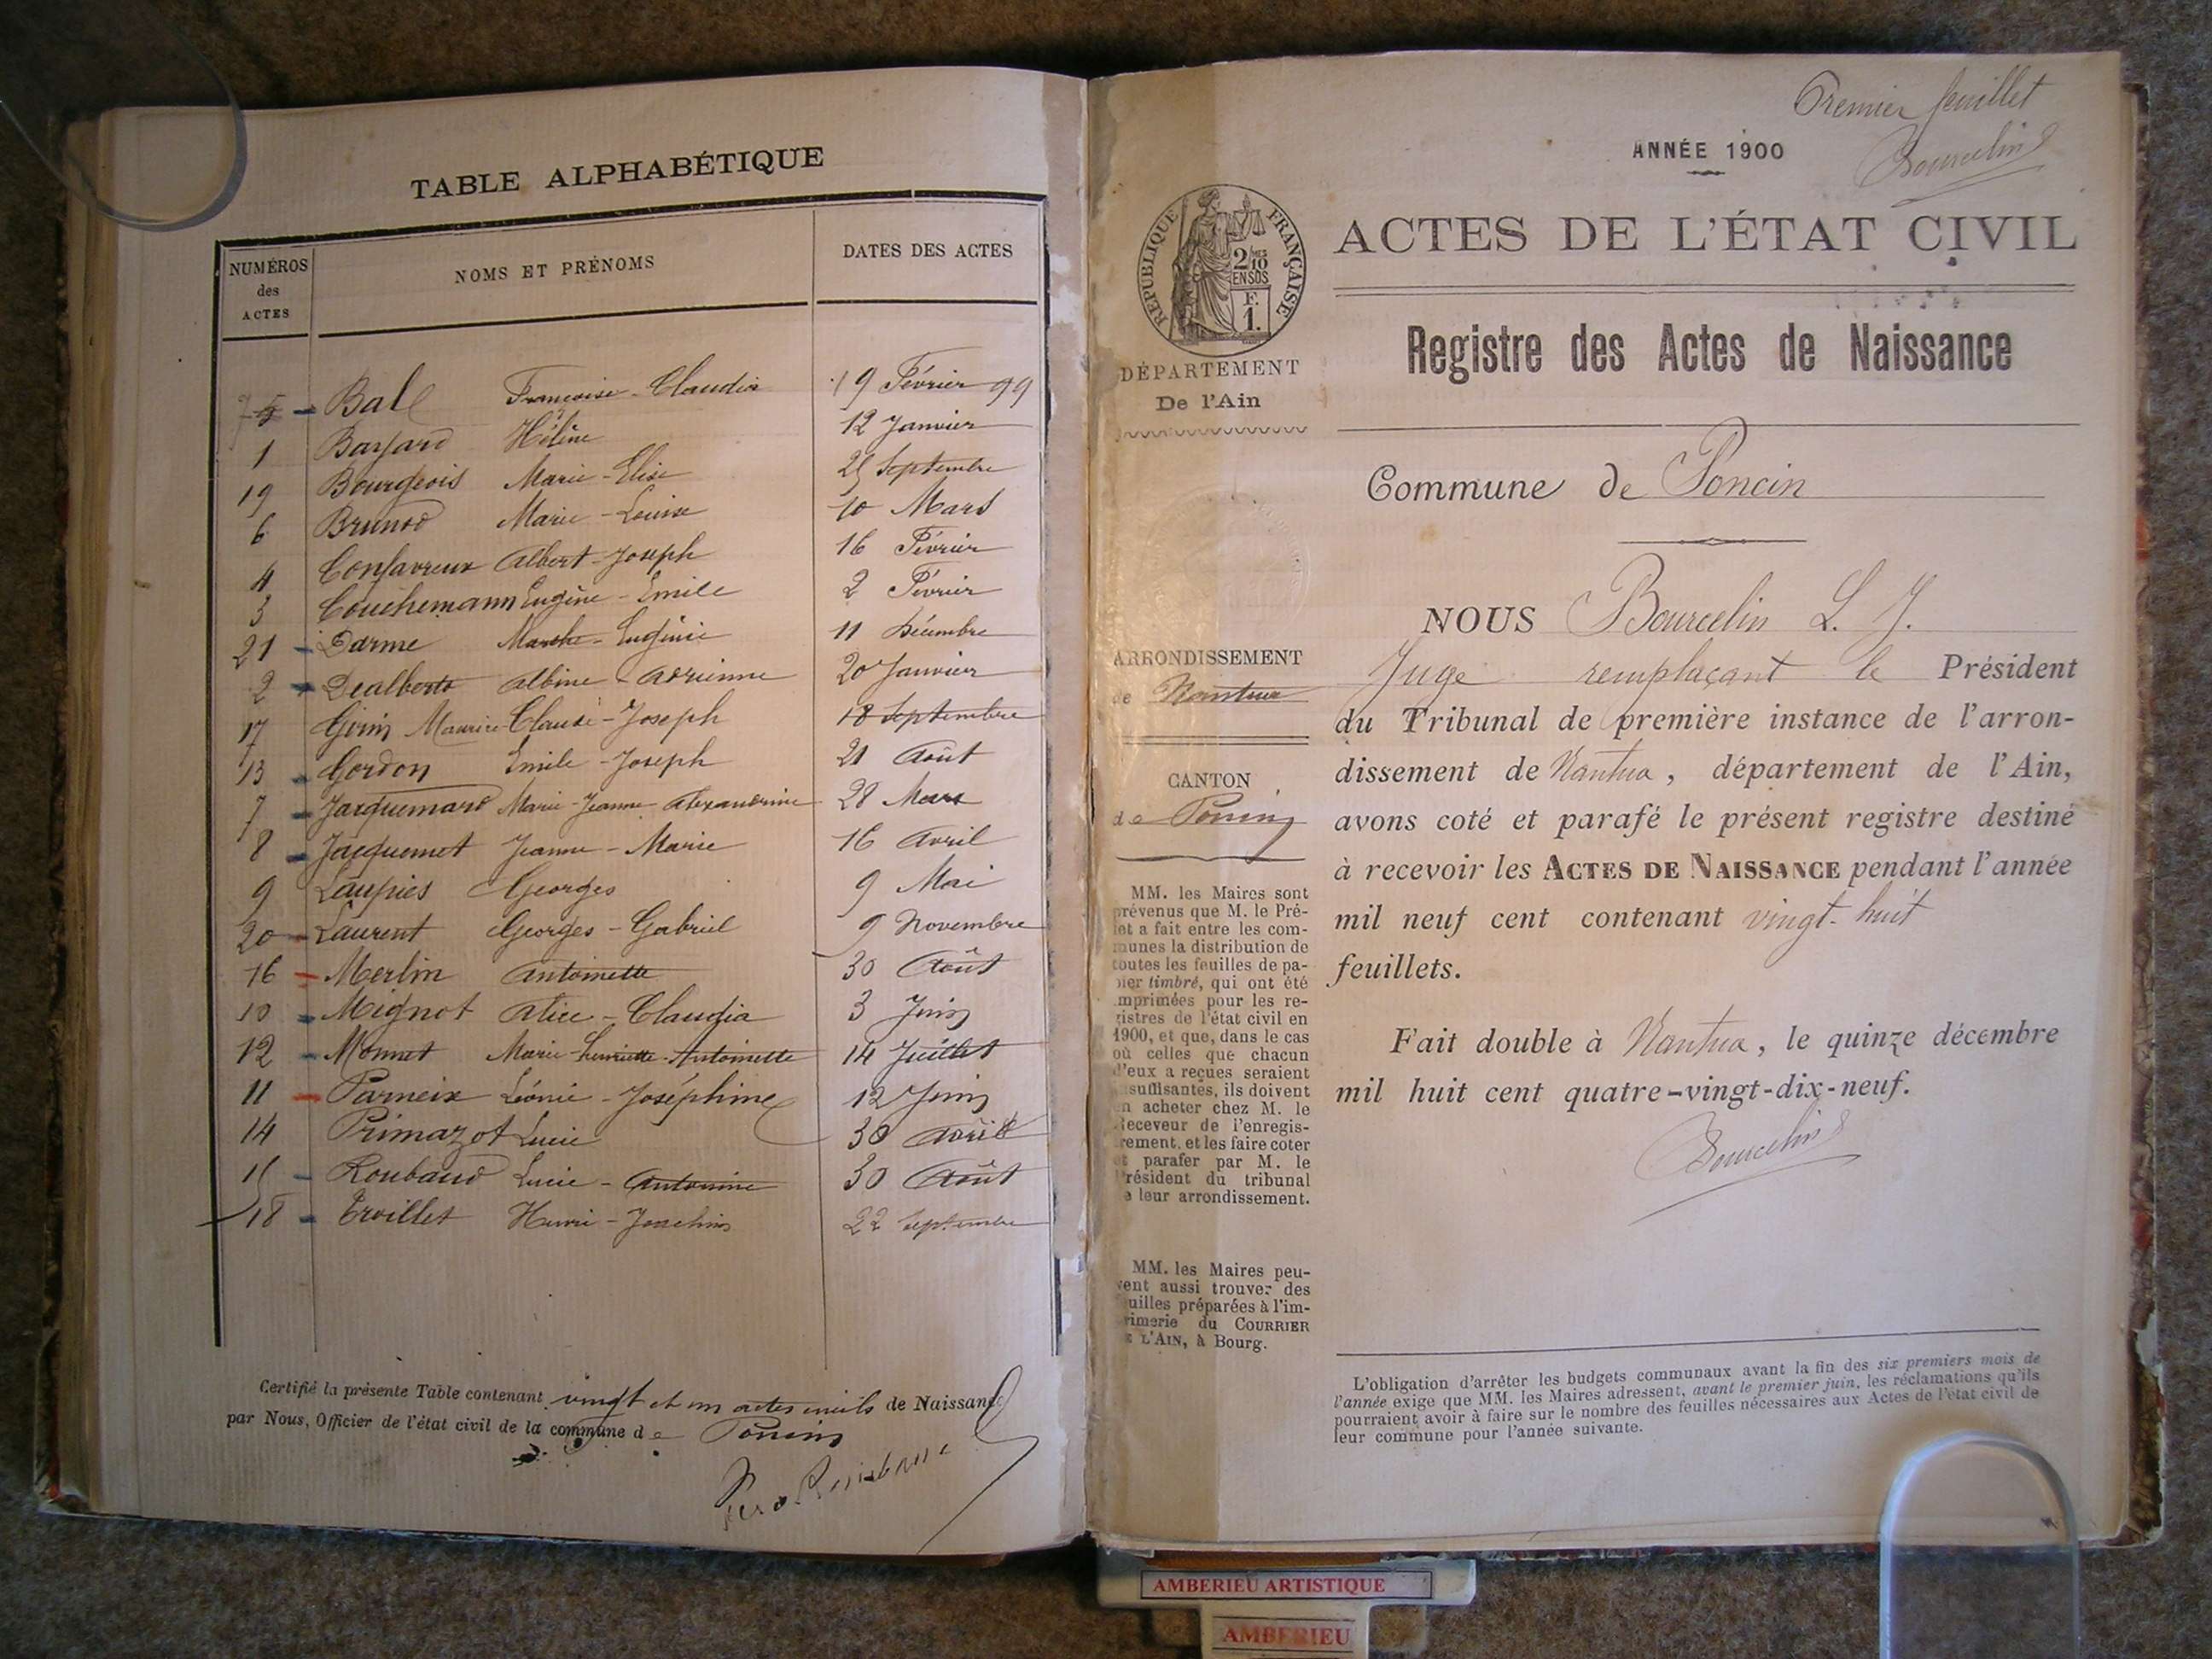 TABLE ALPHABÉTIQUE
NUMÉROS des ACTES
NOMS ET PRÉNOMS
DATES DES ACTES
5 Ball Françoise - Claudia 19 Février 99
1 Bayard Hélène 12 Janvier
19 Bourgeois Marie - Elise 25 Septembre
6 Brunod Marie - Louise 10 Mars
4 Confavreux Albert - Joseph 16 Février
3 Couchemann Eugène - Emile 2 Février
21 - Darme Marthe - Eugénie 11 Décembre
2 - Dealberto Albine - Adrienne 20 Janvier
17 Girin Maurice-Claude-Joseph 18 Septembre
13 - Gordon Emile - Joseph 21 Août
7 - Jacquemard Marie-Jeanne-Alexandrine 28 Mars
8 - Jacquemet Jeanne - Marie 16 Avril
9 Laupies Georges 9 Mai
20 - Laurent Georges - Gabriel 9 Novembre
16 - Merlin Antoinette 30 Août
10 - Mignot Alice - Claudia 3 Juin
12 - Monnet Marie-Henriette-Antoinette 14 Juillet
11 - Parneix Léonie - Joséphine 12 Juin
14 Primazot Lucie 30 Août
15 - Roubaud Lucie - Antonine 30 Août
18 - Trvillet Henri - Joachim 22 Septembre
Certifié la présente Table contenant vingt et un actes inscrits de Naissance
par Nous, Officier de l'état civil de la commune de Poncin
Premier feuillet
Bourcelin
ANNÉE 1900
RÉPUBLIQUE FRANÇAISE
2/10
EN SUS
F.
1.
ACTES DE L'ÉTAT CIVIL
Registre des Actes de Naissance
DÉPARTEMENT
De l'Ain
Commune de Poncin
ARRONDISSEMENT
de Nantua
CANTON
de Poncin
MM. les Maires sont
prévenus que M. le Pré-
fet a fait entre les com-
munes la distribution de
toutes les feuilles de pa-
pier timbré, qui ont été
imprimées pour les re-
gistres de l'état civil en
1900, et que, dans le cas
où celles que chacun
d'eux a reçues seraient
insuffisantes, ils doivent
en acheter chez M. le
Receveur de l'enregis-
trement, et les faire coter
et parafer par M. le
Président du tribunal
de leur arrondissement.
MM. les Maires peu-
vent aussi trouver des
feuilles préparées à l'im-
primerie du COURRIER
DE L'AIN, à Bourg.
NOUS Bourcelin L. J.
Juge remplaçant le Président
du Tribunal de première instance de l'arron-
dissement de Nantua, département de l'Ain,
avons coté et parafé le présent registre destiné
à recevoir les ACTES DE NAISSANCE pendant l'année
mil neuf cent contenant vingt-huit
feuillets.
Fait double à Nantua, le quinze décembre
mil huit cent quatre-vingt-dix-neuf.
Bourcelin
L'obligation d'arrêter les budgets communaux avant la fin des six premiers mois de
l'année exige que MM. les Maires adressent, avant le premier juin, les réclamations qu'ils
pourraient avoir à faire sur le nombre des feuilles nécessaires aux Actes de l'état civil de
leur commune pour l'année suivante.
AMBERIEU ARTISTIQUE
AMBERIEU